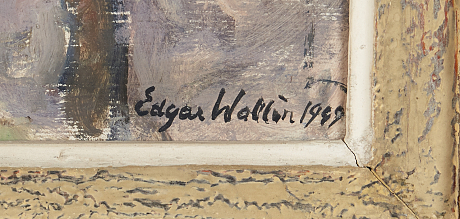 Edgar Wallin 1949